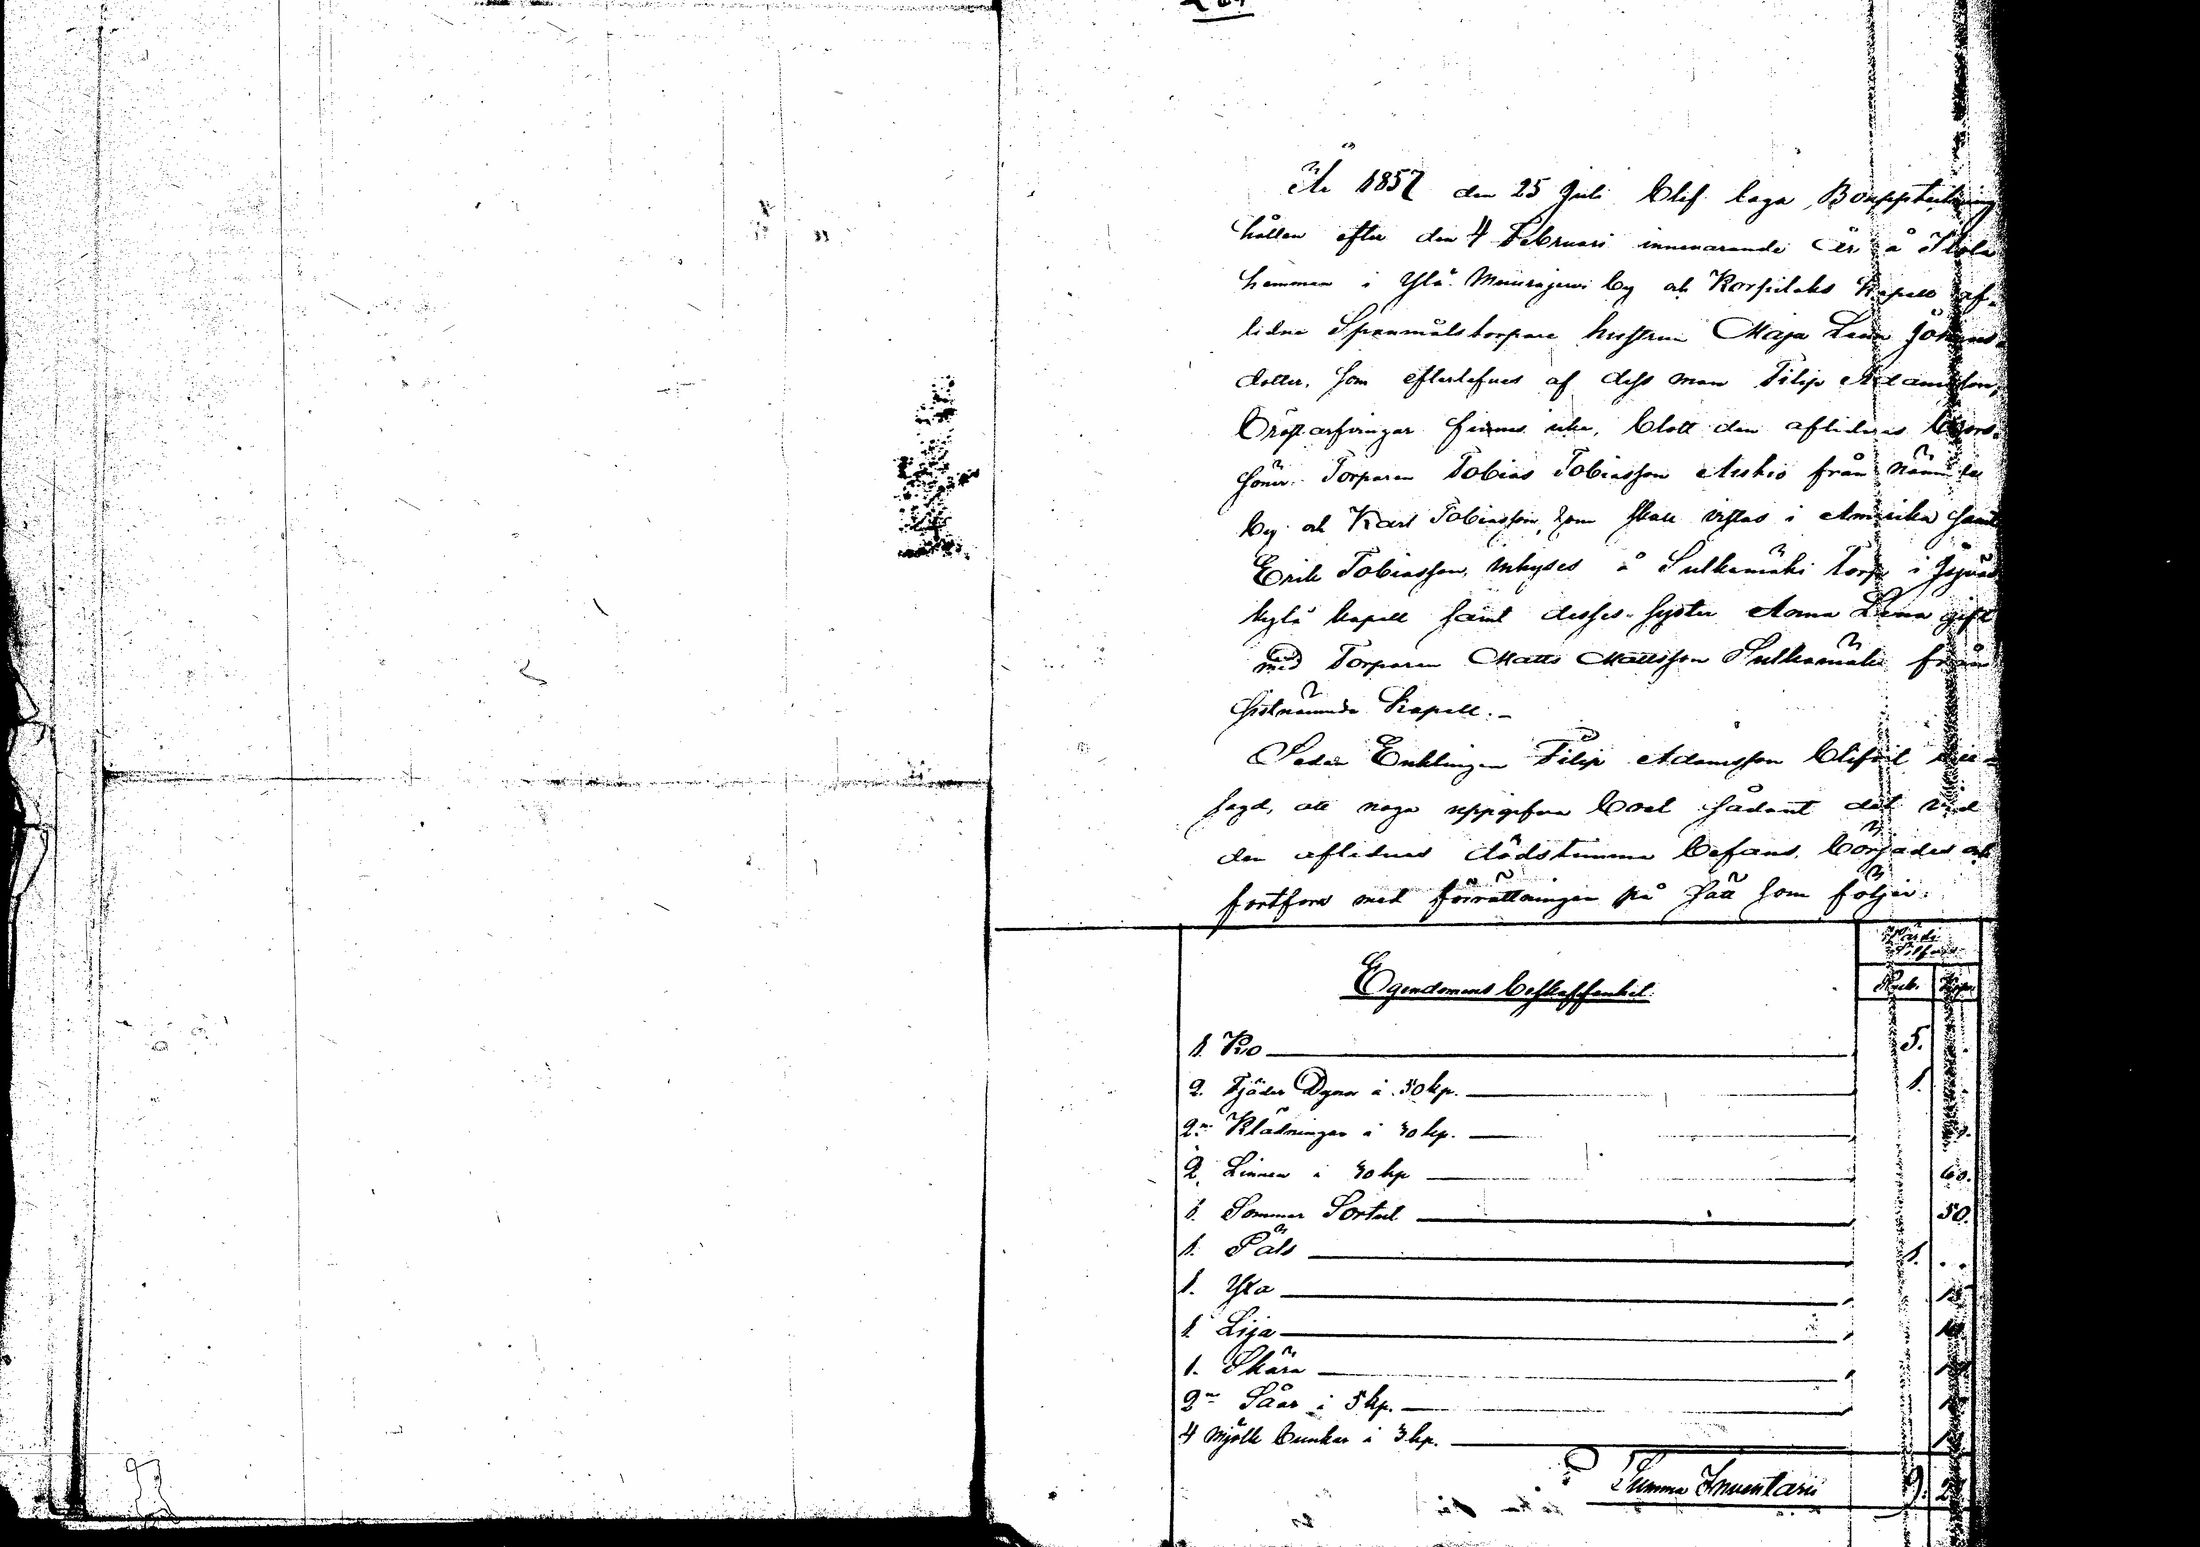 År 1857 den 25 Juli blef laga Bouppteckning
hållen efter den 4 Februari innevarande år å
hemman i Ylä Muurajärvi by och Korpilaks Kapell af-
lidne Spanmålstorpare hustrun Maja Lena Johans-
dotter, som efterlefves af dess man Filip Adamsson,
Bröstarfvingar finnes icke, blott den aflidnes
söner Torparen Tobias Tobiasson från nämnde
by och Karl Tobiasson, som skall vistas i Amerika samt
Erik Tobiasson, inhyses å Sulkamäki Torp i Jyväs-
kylä kapell samt desses syster Anna Lena gift
med Torparen Matts Mattsson Sulkamäki från
sistnämnde Kapell.-
Sedan Enklingen Filip Adamsson blifvit till-
sagd, att noga uppgifva boet sådant det vid
den aflidnes dödstimma befans, börjades och
fortfors med förrättningen på sätt som följer:
Värde Silfver
Egendomens beskaffenhet. Rub. Kop.
1. Ko 5. .
2. Fjäder Dynor à 50 kp. 1. .
2ne Klädningar à 30 kp.
2. Linnen à 30 kp 60.
1. Sommar Sortut 50.
1. Päls 1. . .
1. Yxa 15
1. Lija
1. Skära
2ne Såar à 5 kp.
4 Mjölk bunkar à 3 kp.
Summa Inventarii 9.